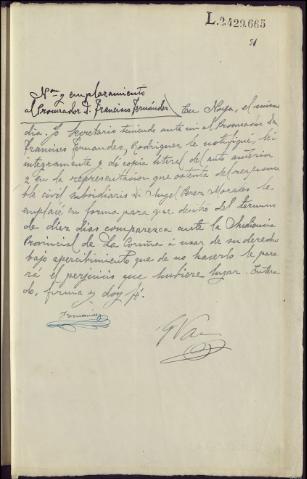 L.2429.665
Non y emplazamiento
al Procurador D. Francisco Fernández / En Noya, el mismo
dia; Yo Secretario teniendo ante mi al Procurador Dn
Francisco Fernandez Rodriguez le notifiqué, leí
integramente y di copia literal del auto anterior
y en la representacion que ostenta del responsa
ble civil subsidiario D. Angel Perez le
emplacé en forma para que dentro del termino
de diez dias comparezca ante la Audiencia
Provincial de La Coruña a usar de su derecho
bajo apercibimiento que de no hacerlo le para
rá el perjuicio que hubiere lugar. Entera
do, firma y doy fé.
Fernandez